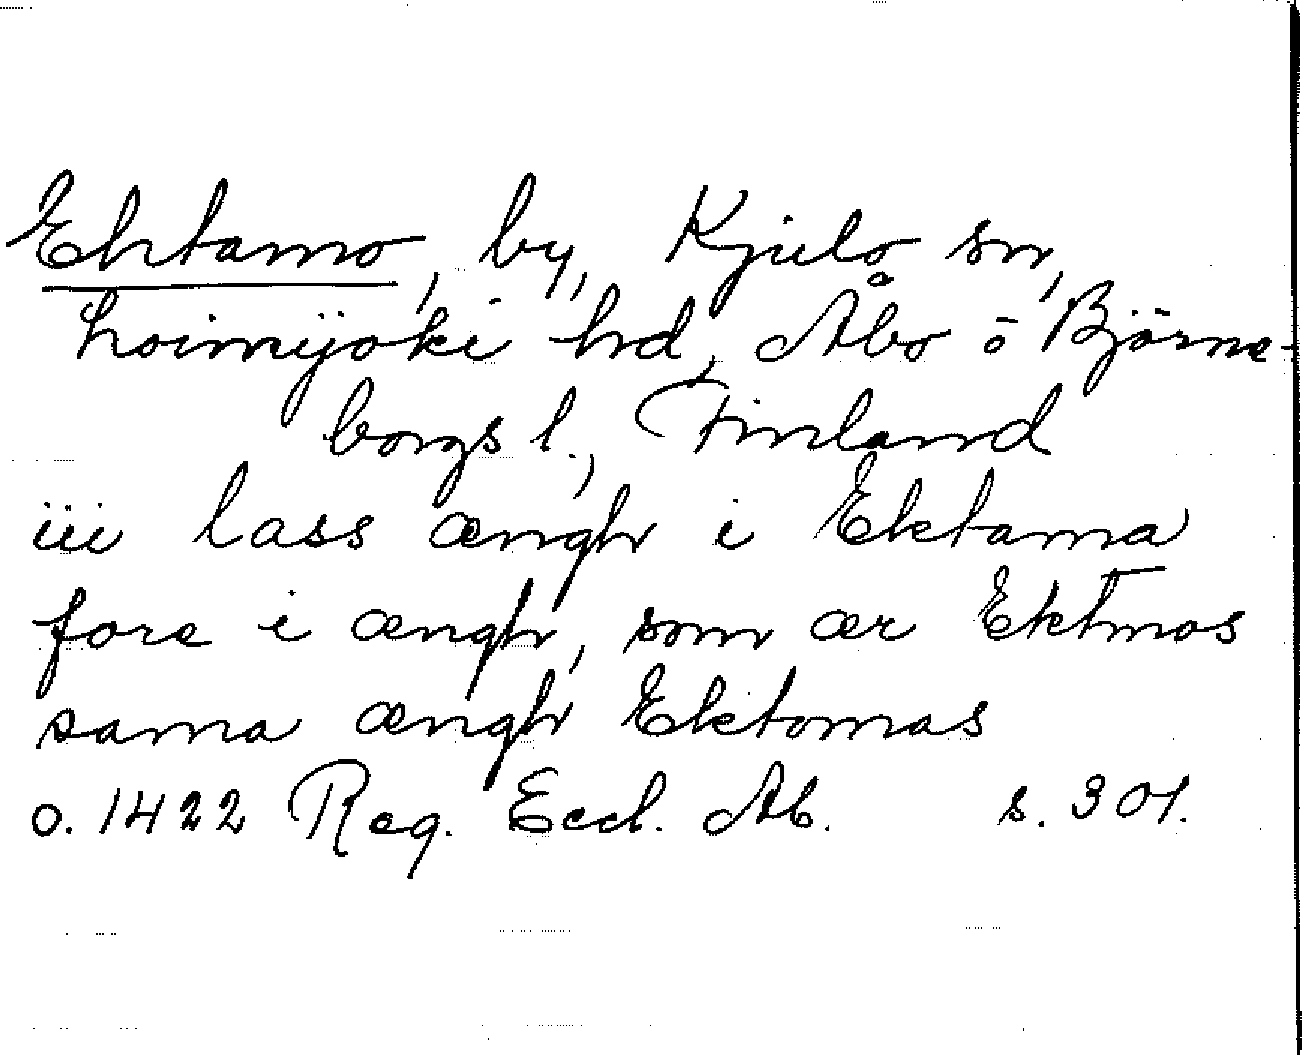 Ehtamo, by, Kjulo sn,
Loimijoki hd, Åbo o Björne-
borgs l., Finland
iii lass ængh i Ektama
fore i ængh, som ær Ektm̄os
sama ængh Ektomas
o. 1422 Reg. Eccl. Ab. s. 301.